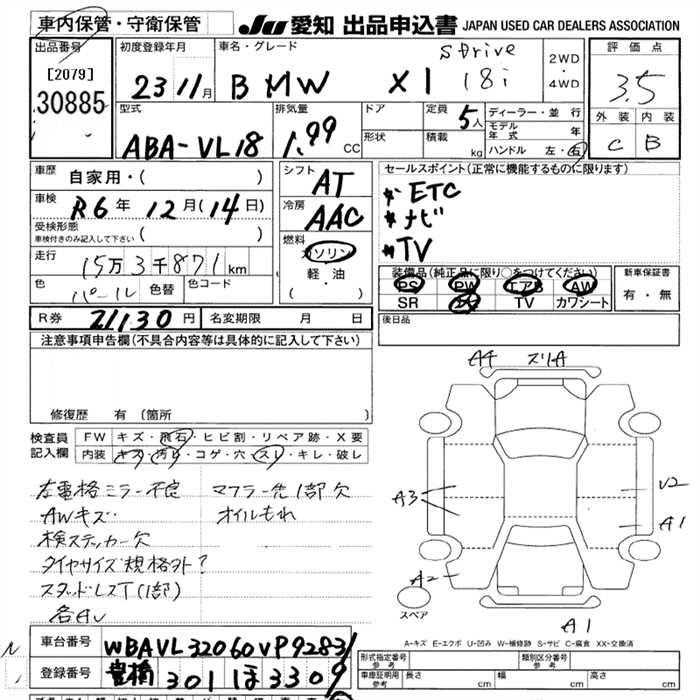 車内保管・守衛保管
JU 愛知 出品申込書 JAPAN USED CAR DEALERS ASSOCIATION
出品番号 [2079] 30885
初度登録年月 23 11月
車名・グレード BMW X1 sDrive 18i
2WD・4WD
評価点 3.5
外装 内装 C B
型式 ABA-VL18
排気量 1.99 CC
ドア 形状
定員 5人
積載 kg
ディーラー・並行
モデル年式 年
ハンドル 左・右
車歴 自家用・( )
車検 R6年 12月(14日)
受検形態 車検付きのみ記入して下さい ( )
走行 15万3千871km
色 パール 色替 色コード
シフト AT
冷房 AAC
燃料 ガソリン
軽・油
( ・ )
セールスポイント(正常に機能するものに限ります)
* ETC
* ナビ
* TV
装備品(純正品に限り○をつけてください)
PS PW エアB AW
SR TV カワシート
新車保証書 有・無
後日品
R券 21130円 名変期限 月 日
注意事項申告欄(不具合内容等は具体的に記入して下さい)
修復歴 有 (箇所 )
検査員記入欄
FW キズ・飛石・ヒビ割・リペア跡・X要
内装 キズ・汚レ・コゲ・穴・スレ・キレ・破レ
左電格ミラー不良 マフラー先1部欠
AWキズ オイルもれ
検ステッカー欠
タイヤサイズ規格外?
スタッドレスT(1部)
各AU
A4 スリA
A3
A2
U2
A1
スペア
A1
A-キズ E-エクボ U-凹み W-補修跡 S-サビ C-腐食 XX-交換済
車台番号 WBAVL32060VP92831
登録番号 豊橋 301 ほ 3309
形式指定番号 参考 類別区分番号 参考
車庫証明用 参考 長さ cm 幅 cm 高さ cm